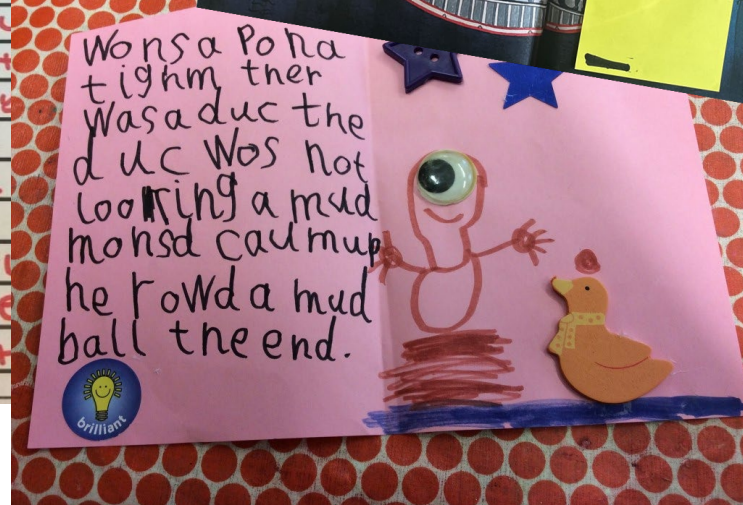 Wonsa Pona
tighm ther
Wasaduc the
duc Wos not
looking a mud
monsd caumup
he rowd a mud
ball the end.
brilliant